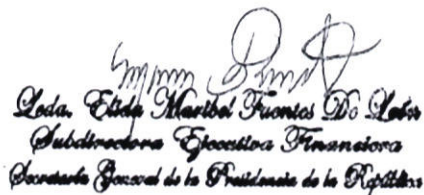 Leda. Elida Maribel Fuentes De León
Subdirectora Ejecutiva Financiera
Secretaría General de la Presidencia de la República